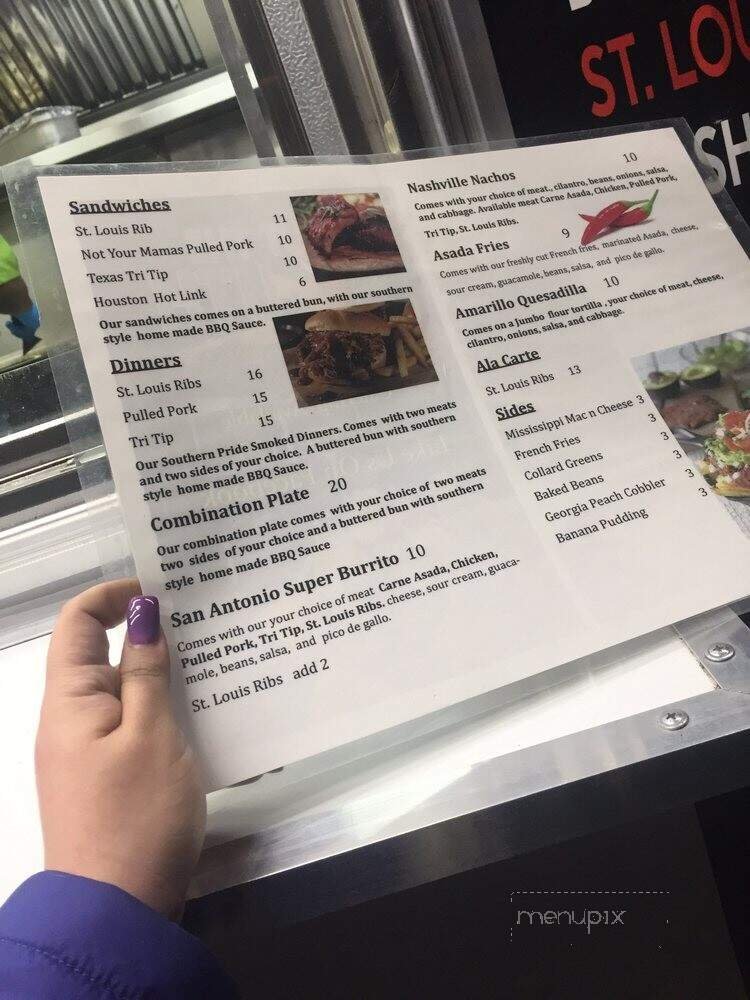 ST. LOU
SH
Sandwiches
St. Louis Rib 11
Not Your Mamas Pulled Pork 10
Texas Tri Tip 10
Houston Hot Link 6
Our sandwiches comes on a buttered bun, with our southern
style home made BBQ Sauce.
Dinners
St. Louis Ribs 16
Pulled Pork 15
Tri Tip 15
Our Southern Pride Smoked Dinners. Comes with two meats
and two sides of your choice. A buttered bun with southern
style home made BBQ Sauce.
Combination Plate 20
Our combination plate comes with your choice of two meats
two sides of your choice and a buttered bun with southern
style home made BBQ Sauce
San Antonio Super Burrito 10
Comes with our your choice of meat Carne Asada, Chicken,
Pulled Pork, Tri Tip, St. Louis Ribs. cheese, sour cream, guaca-
mole, beans, salsa, and pico de gallo.
St. Louis Ribs add 2
Nashville Nachos 10
Comes with your choice of meat., cilantro, beans, onions, salsa,
and cabbage. Available meat Carne Asada, Chicken, Pulled Pork,
Tri Tip, St. Louis Ribs.
Asada Fries 9
Comes with our freshly cut French fries, marinated Asada, cheese,
sour cream, guacamole, beans, salsa, and pico de gallo.
Amarillo Quesadilla 10
Comes on a Jumbo flour tortilla , your choice of meat, cheese,
cilantro, onions, salsa, and cabbage.
Ala Carte
St. Louis Ribs 13
Sides
Mississippi Mac n Cheese 3
French Fries 3
Collard Greens 3
Baked Beans 3
Georgia Peach Cobbler 3
Banana Pudding 3
menupix